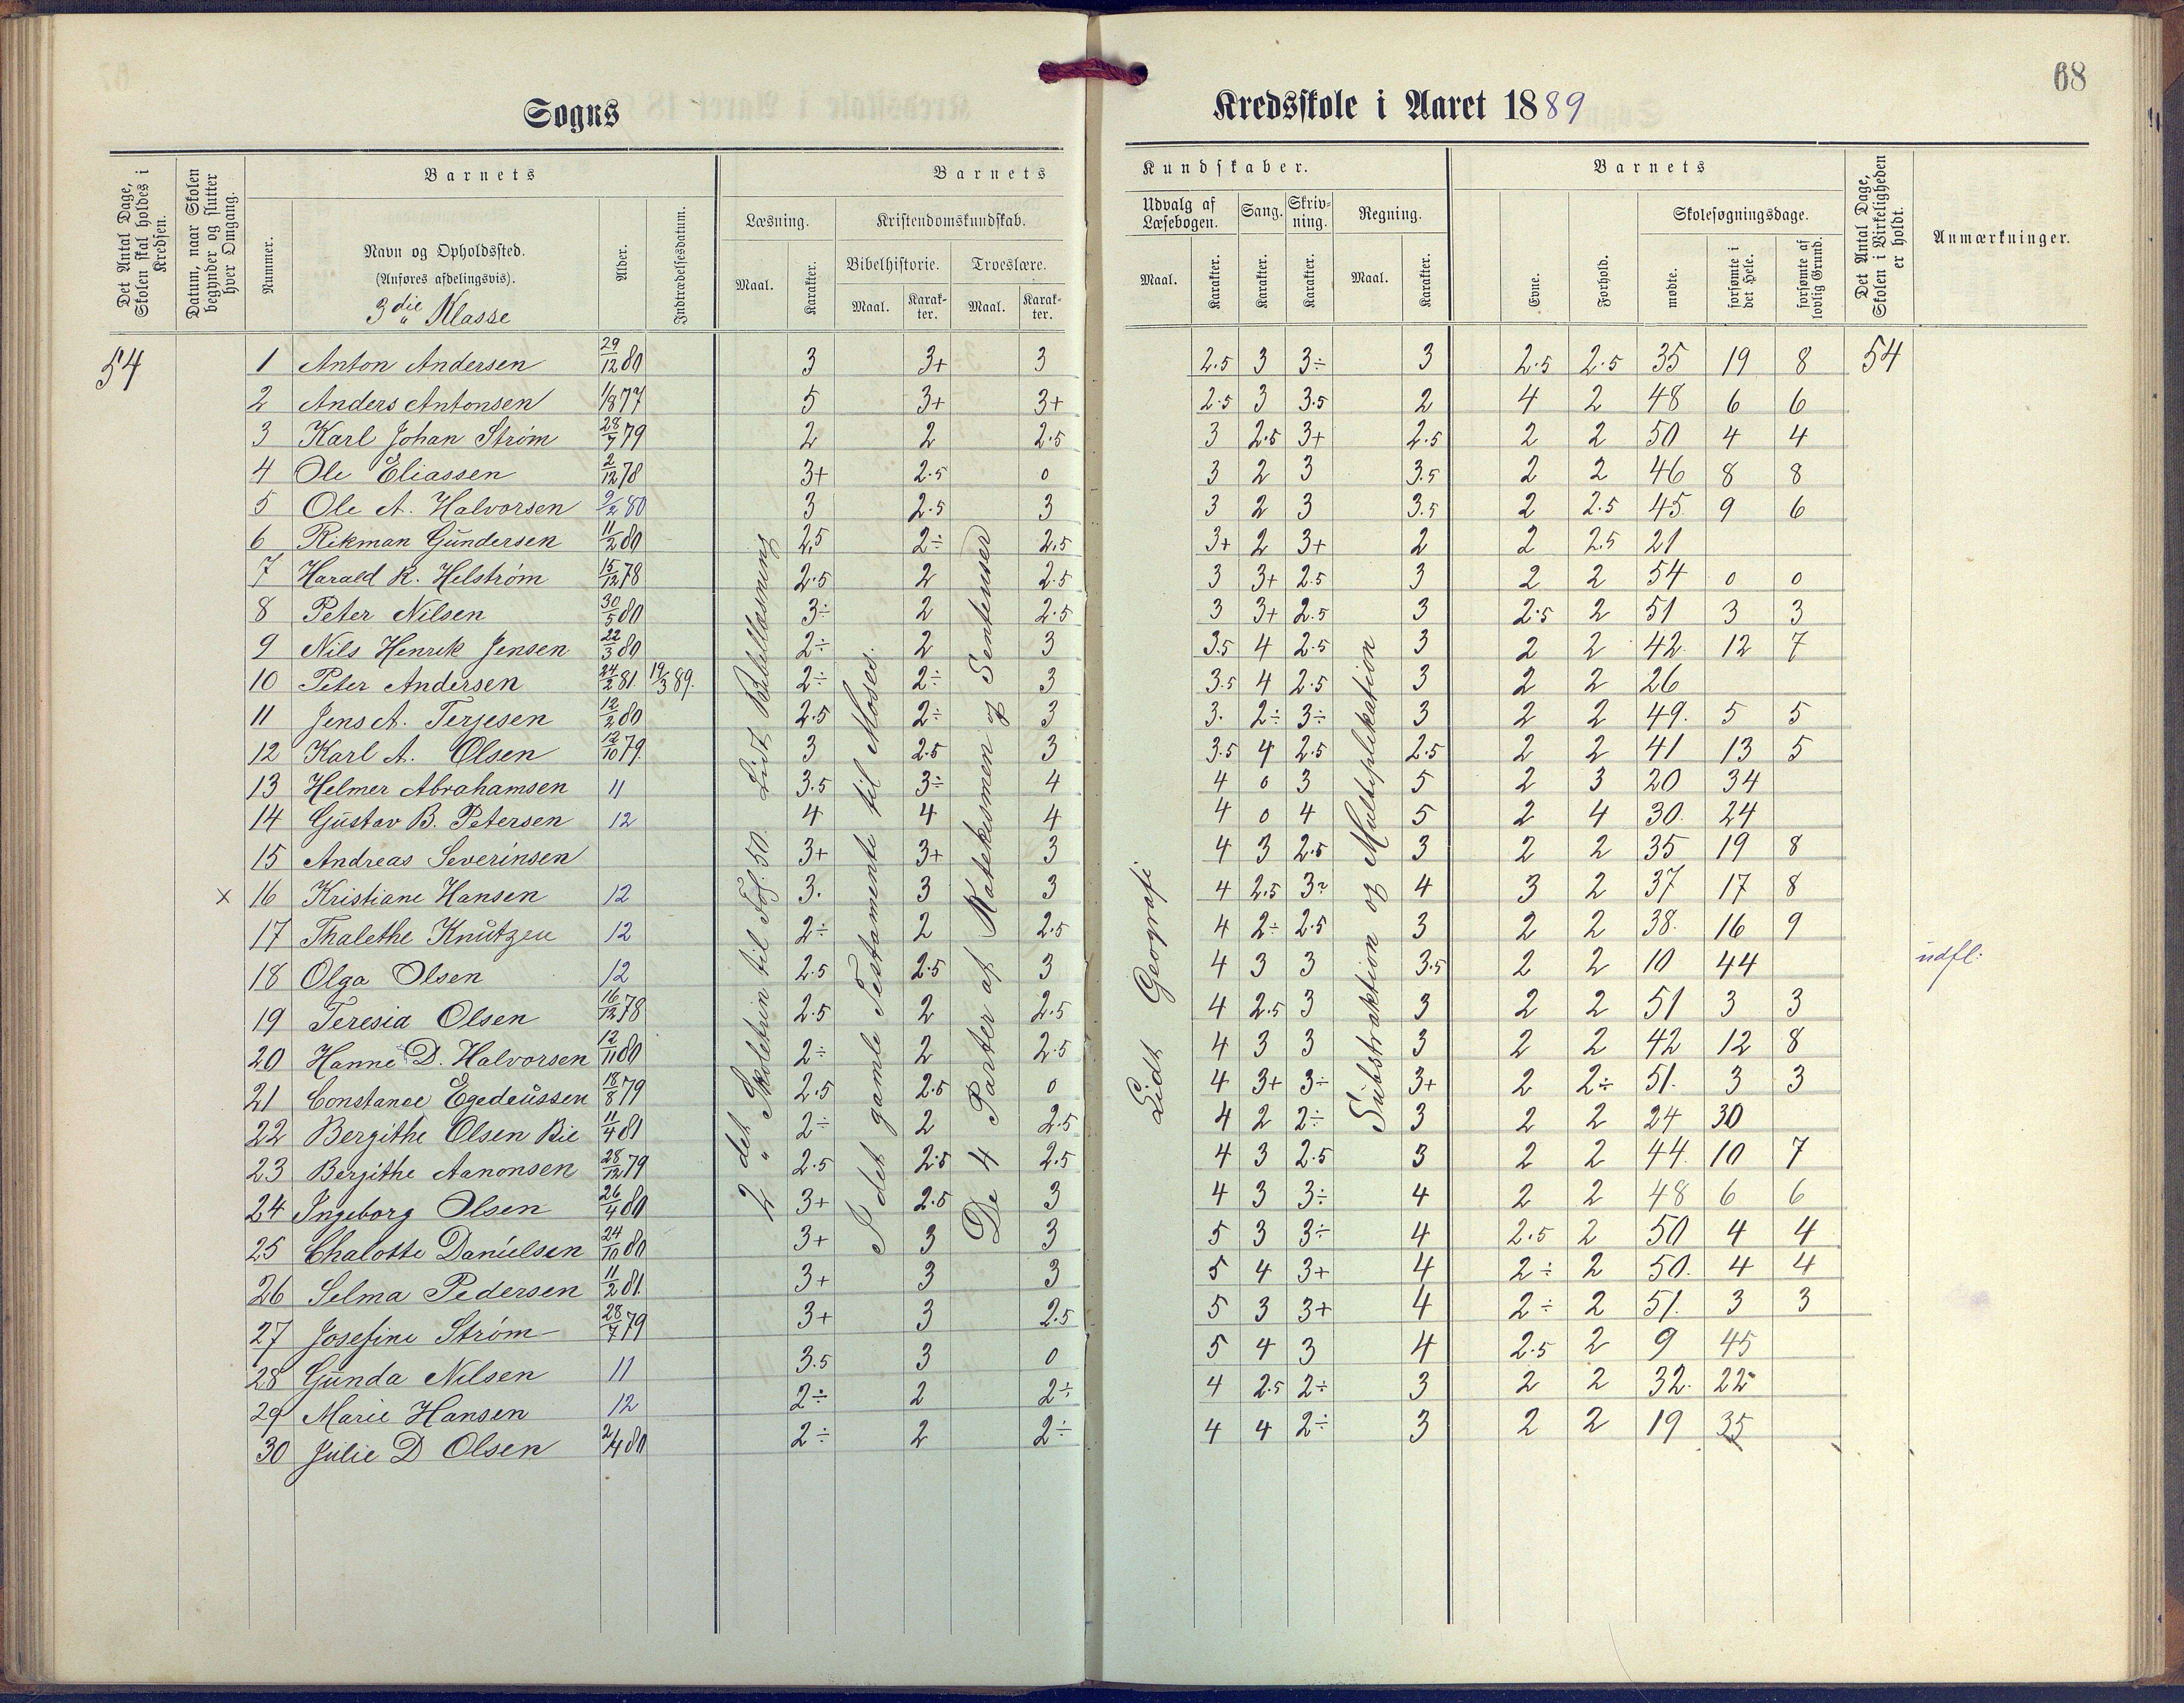 68
Sogns
Kredsskole i Aaret 1889
Det Antal Dage, Skolen skal holdes i Kredsen.
Datum, naar Skolen begynder og slutter hver Omgang.
Barnets
Nummer.
Navn og Opholdssted.
(Anføres afdelingsvis).
3die Klasse
Alder.
Indtrædelsesdatum.
Barnets
Læsning.
Maal.
Karakter.
Kristendomskundskab.
Bibelhistorie.
Maal.
Karakter.
Troeslære.
Maal.
Karakter.
Kundskaber.
Udvalg af Læsebogen.
Maal.
Karakter.
Sang.
Karakter.
Skrivning.
Karakter.
Regning.
Maal.
Karakter.
Barnets
Evne.
Forhold.
Skolesøgningsdage.
mødte.
forsømte i det Hele.
forsømte af lovlig Grund.
Det Antal Dage, Skolen i Virkeligheden er holdt.
Anmærkninger.
2det Skoletrin til Fol. 50. Lidt Bibellæsning
I det gamle Testamente til Moses.
De 4 Parter af Katekismen og Sentenser
Lidt Geografi.
Substraktion og Multiplikation
54 1 Anton Andersen 29/12 80 3 3+ 3 2.5 3 3÷ 3 2.5 2.5 35 19 8 54
2 Anders Antonsen 1/8 77 5 3+ 3+ 2.5 3 3.5 2 4 2 48 6 6
3 Karl Johan Strøm 28/7 79 2 2 2.5 3 2.5 3+ 2.5 2 2 50 4 4
4 Ole Eliassen 2/12 78 3+ 2.5 0 3 2 3 3.5 2 2 46 8 8
5 Ole A. Halvorsen 9/2 80 3 2.5 3 3 2 3 3.5 2 2.5 45 9 6
6 Rikman Gundersen 11/2 80 2.5 2÷ 2.5 3+ 2 3+ 2 2 2.5 21
7 Harald R. Helstrøm 15/12 78 2.5 2 2.5 3 3+ 2.5 3 2 2 54 0 0
8 Peter Nilsen 30/5 80 3÷ 2 2.5 3 3+ 2.5 3 2.5 2 51 3 3
9 Nils Henrik Jensen 22/3 80 2÷ 2 3 3.5 4 2.5 3 2 2 42. 12 7
10 Peter Andersen 24/2 81. 19/3 89. 2÷ 2÷ 3 3.5 4 2.5 3 2 2 26
11 Jens A. Terjesen 12/2 80 2.5 2÷ 3 3. 2÷ 3÷ 3 2 2 49. 5 5
12 Karl A. Olsen 12/10 79. 3 2.5 3 3.5 4 2.5 2.5 2 2 41 13 5
13 Helmer Abrahamsen 11 3.5 3÷ 4 4 0 3 5 2 3 20 34
14 Gustav B. Petersen 12 4 4 4 4 0 4 5 2 4 30. 24
15 Andreas Severinsen 3+ 3+ 3 4 3 2.5 3 2 2 35 19 8
x 16 Kristiane Hansen 12 3. 3 3 4 2.5 3÷ 4 3 2 37 17 8
17 Thalethe Knutzen 12 2÷ 2 2.5 4 2÷ 2.5 3 2 2 38. 16 9
18 Olga Olsen 12 2.5 2.5 3 4 3 3 3.5 2 2 10 44 udfl:
19 Teresia Olsen 16/12 78 2.5 2 2.5 4 2.5 3 3 2 2 51 3 3
20 Hanne D. Halvorsen 12/11 80 2÷ 2 2.5 4 3 3 3 2 2 42 12 8
21 Constance Egedeussen 18/8 79 2.5 2.5 0 4 3+ 3÷ 3+ 2 2÷ 51. 3 3
22 Bergithe Olsen Bie 11/4 81 2÷ 2 2.5 4 2 2÷ 3 2 2 24 30
23 Bergithe Aanonsen 28/12 79 2.5 2.5 2.5 4 3 2.5 3 2 2 44. 10 7
24 Ingeborg Olsen 26/4 80 3+ 2.5 3 4 3 3÷ 4 2 2 48 6 6
25 Chalotte Danielsen 24/10 80 3+ 3 3 5 3 3÷ 4 2.5 2 50 4 4
26 Selma Pedersen 11/2 81. 3+ 3 3 5 4 3+ 4 2÷ 2 50. 4 4
27 Josefine Strøm 28/7 79 3+ 3 2.5 5 3 3+ 4 2÷ 2 51. 3 3
28 Gunda Nilsen 11 3.5 3 0 5 4 3 4 2.5 2 9 45
29 Marie Hansen 12 2÷ 2 2÷ 4 2.5 2÷ 3 2 2 32. 22
30 Julie D Olsen 2/4 80 2÷ 2 2÷ 4 4 2÷ 3 2 2 19 35